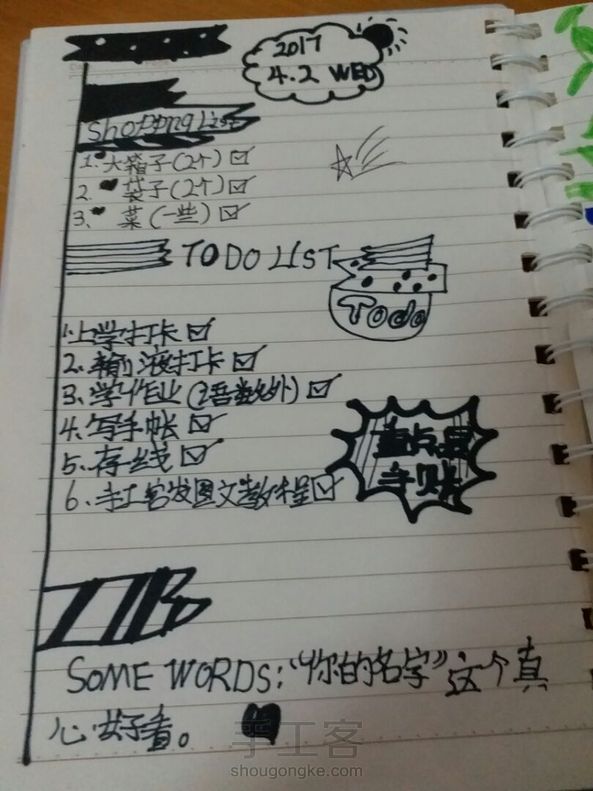 2017
4.2 WED
Shopping List
1. 大箱子(2个)
2. 袋子(2个)
3. 菜(一些)
TO DO LIST
Todo
1. 上学打卡
2. 输液打卡
3. 学作业(语数外)
4. 写手帐
5. 存线
6. 手工客发图文教程
重点是
手账
SOME WORDS:“你的名字”这个真
心好看。
手工客
shougongke.com